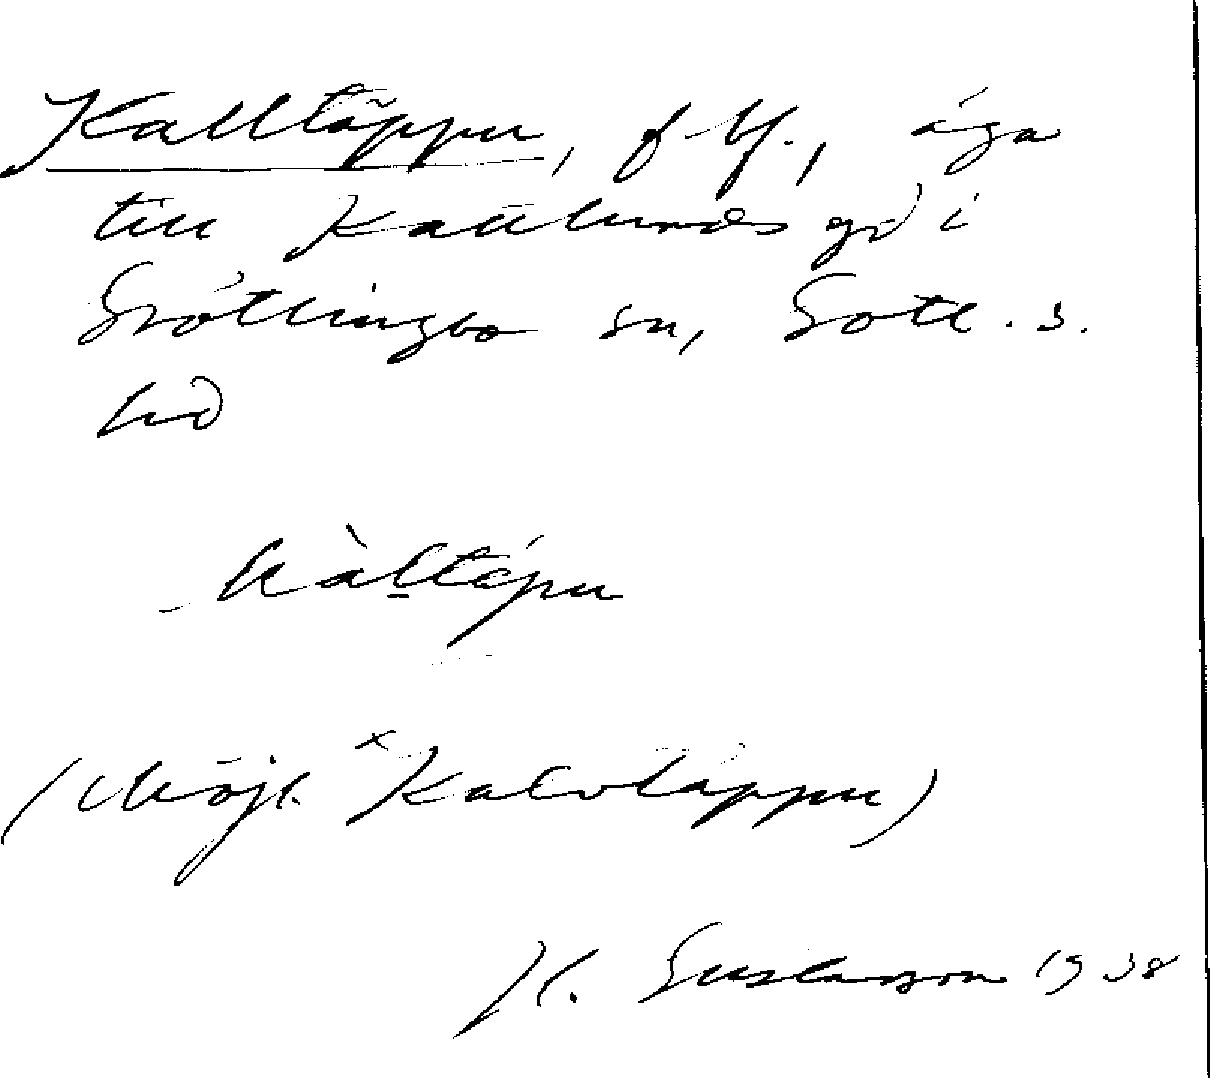 Kalltäppu, f. bf., äga
till Kallunds gd i
Gröttlingbo sn, Gotl. s.
hd
kàltépu
(Möjl. ˣKalvtäppu)
H. Gustavson 1938